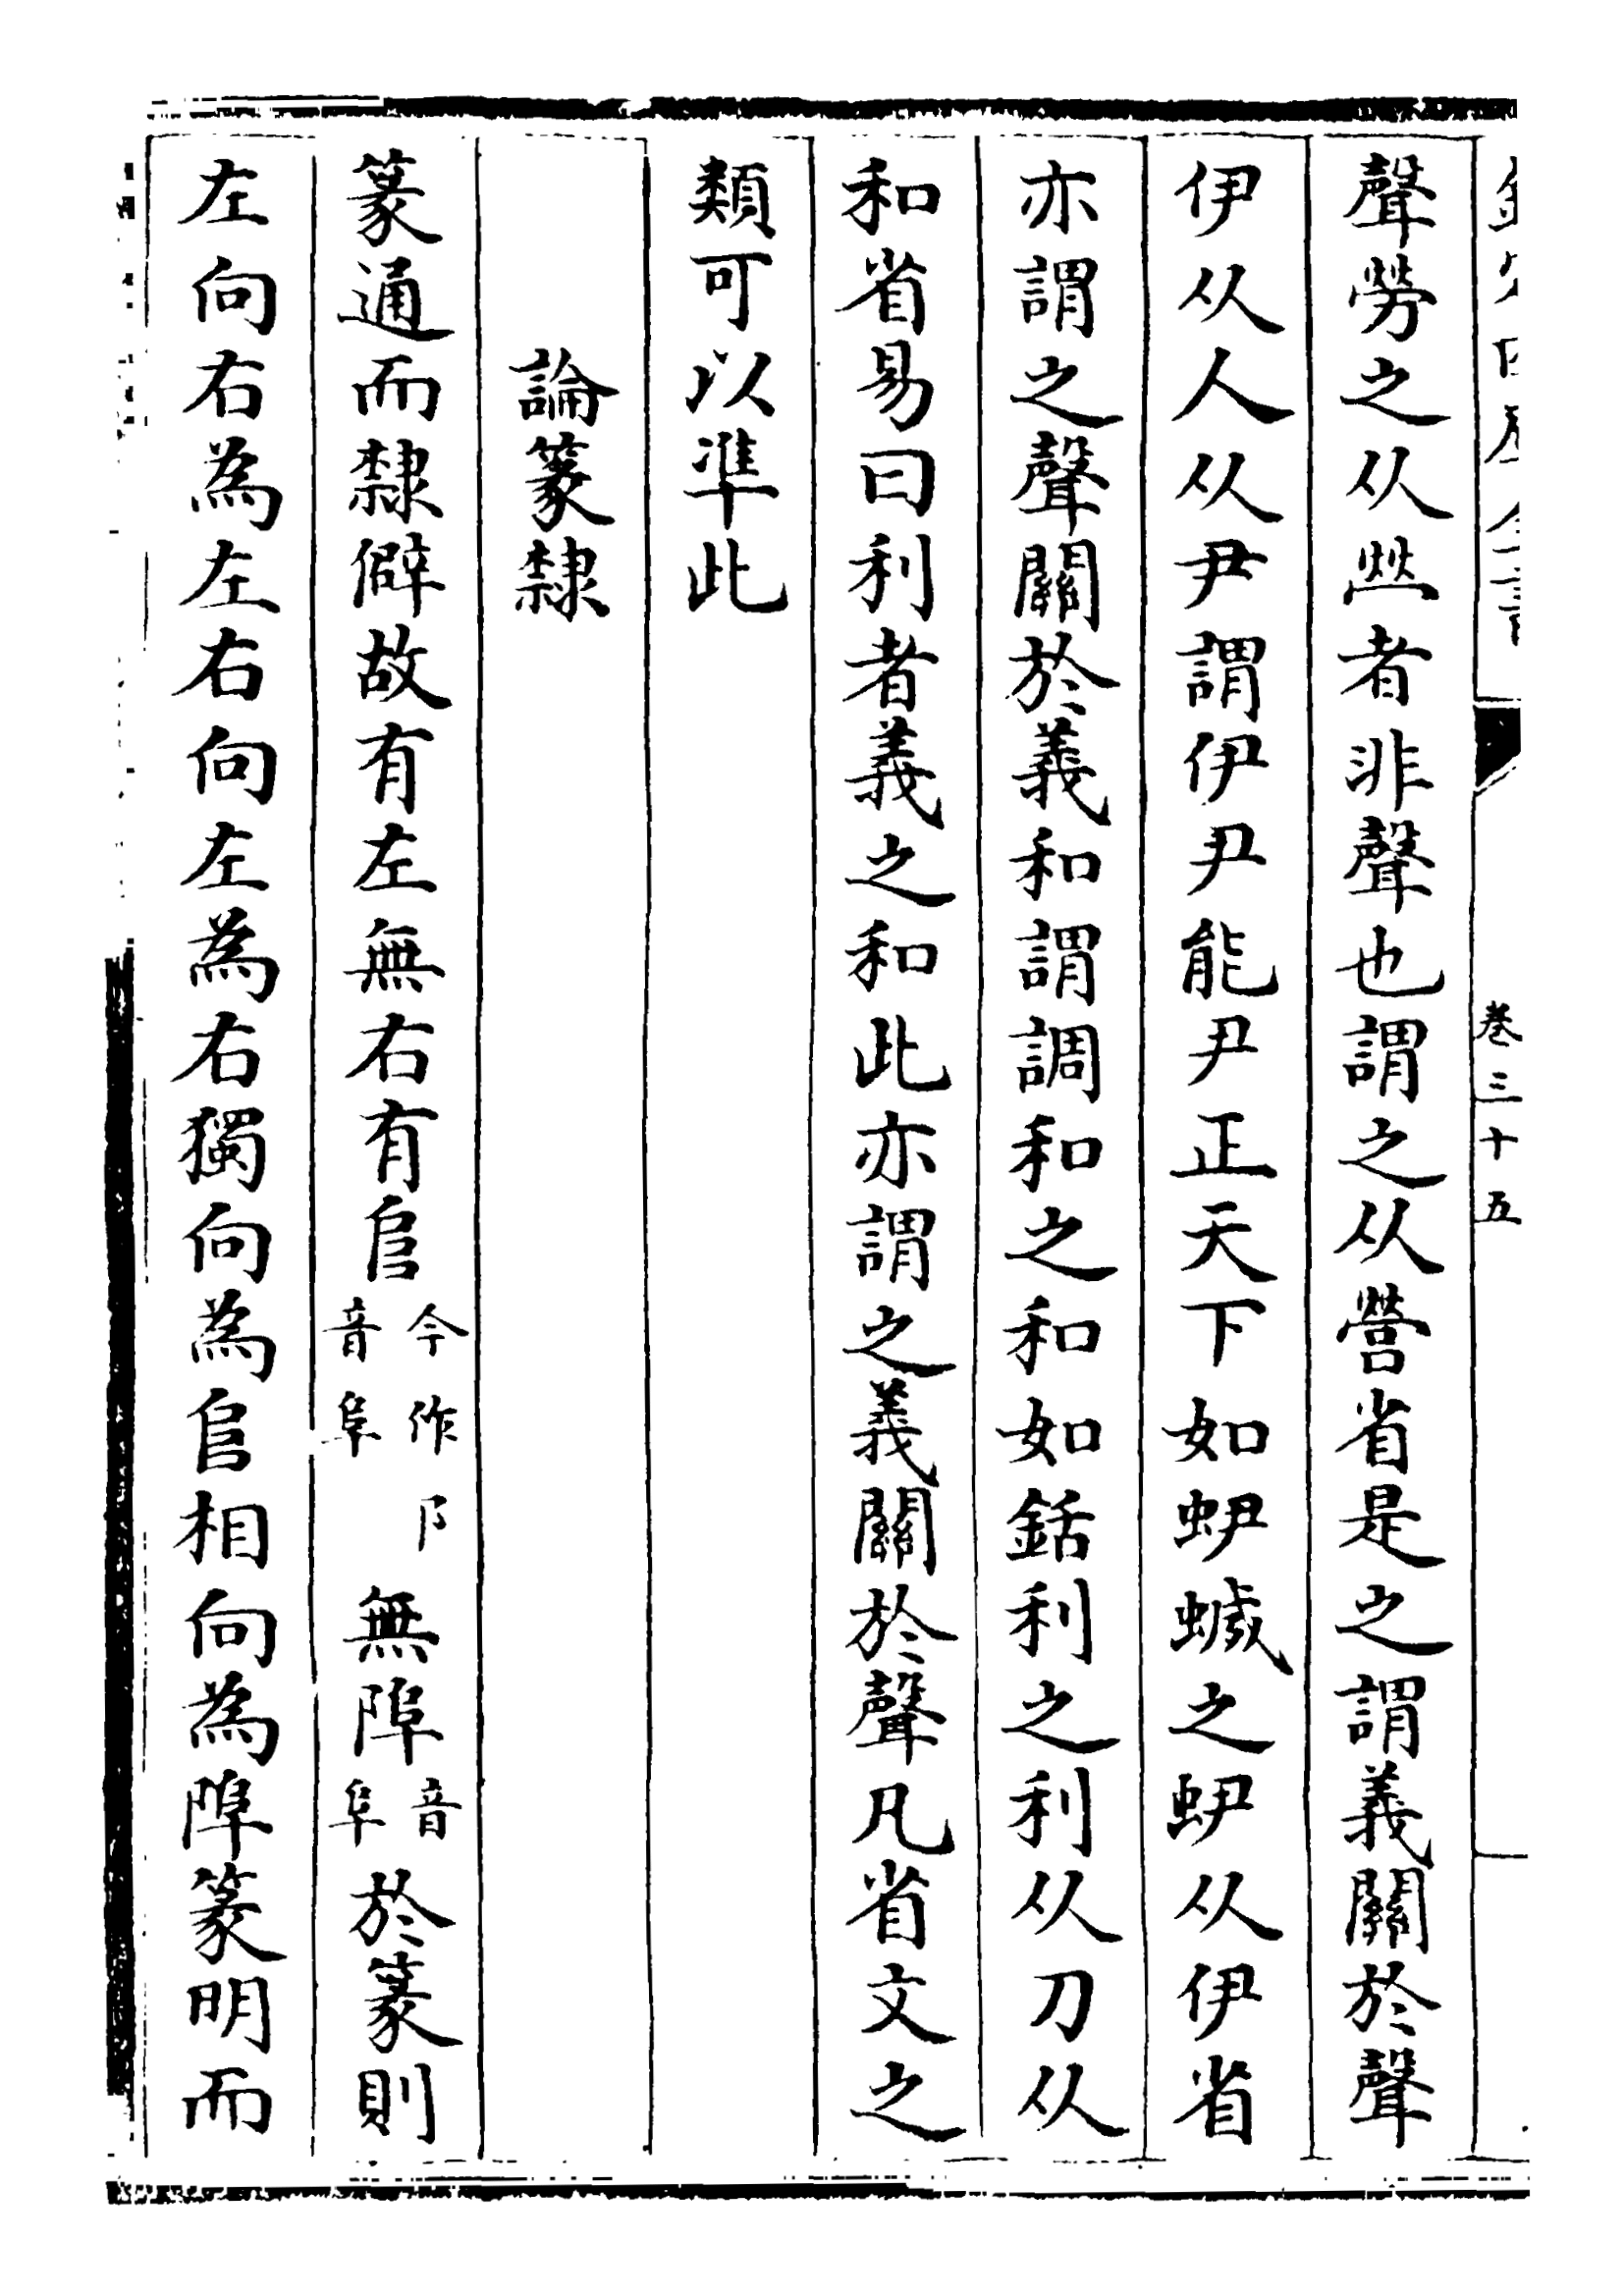 欽定四庫全書 卷三十五
聲勞之从𤇾者非聲也謂之从營省是之謂義關於聲
伊从人从尹謂伊尹能尹正天下如蛜蝛之蛜从伊省
亦謂之聲關於義和謂調和之和如銛利之利从刀从
和省易曰利者義之和此亦謂之義關於聲凡省文之
類可以凖此
論篆隸
篆通而隸僻故有左無右有𨸏今作阝音阜無𨺅音阜於篆則
左向右為左右向左為右獨向為𨸏相向為𨺅篆明而